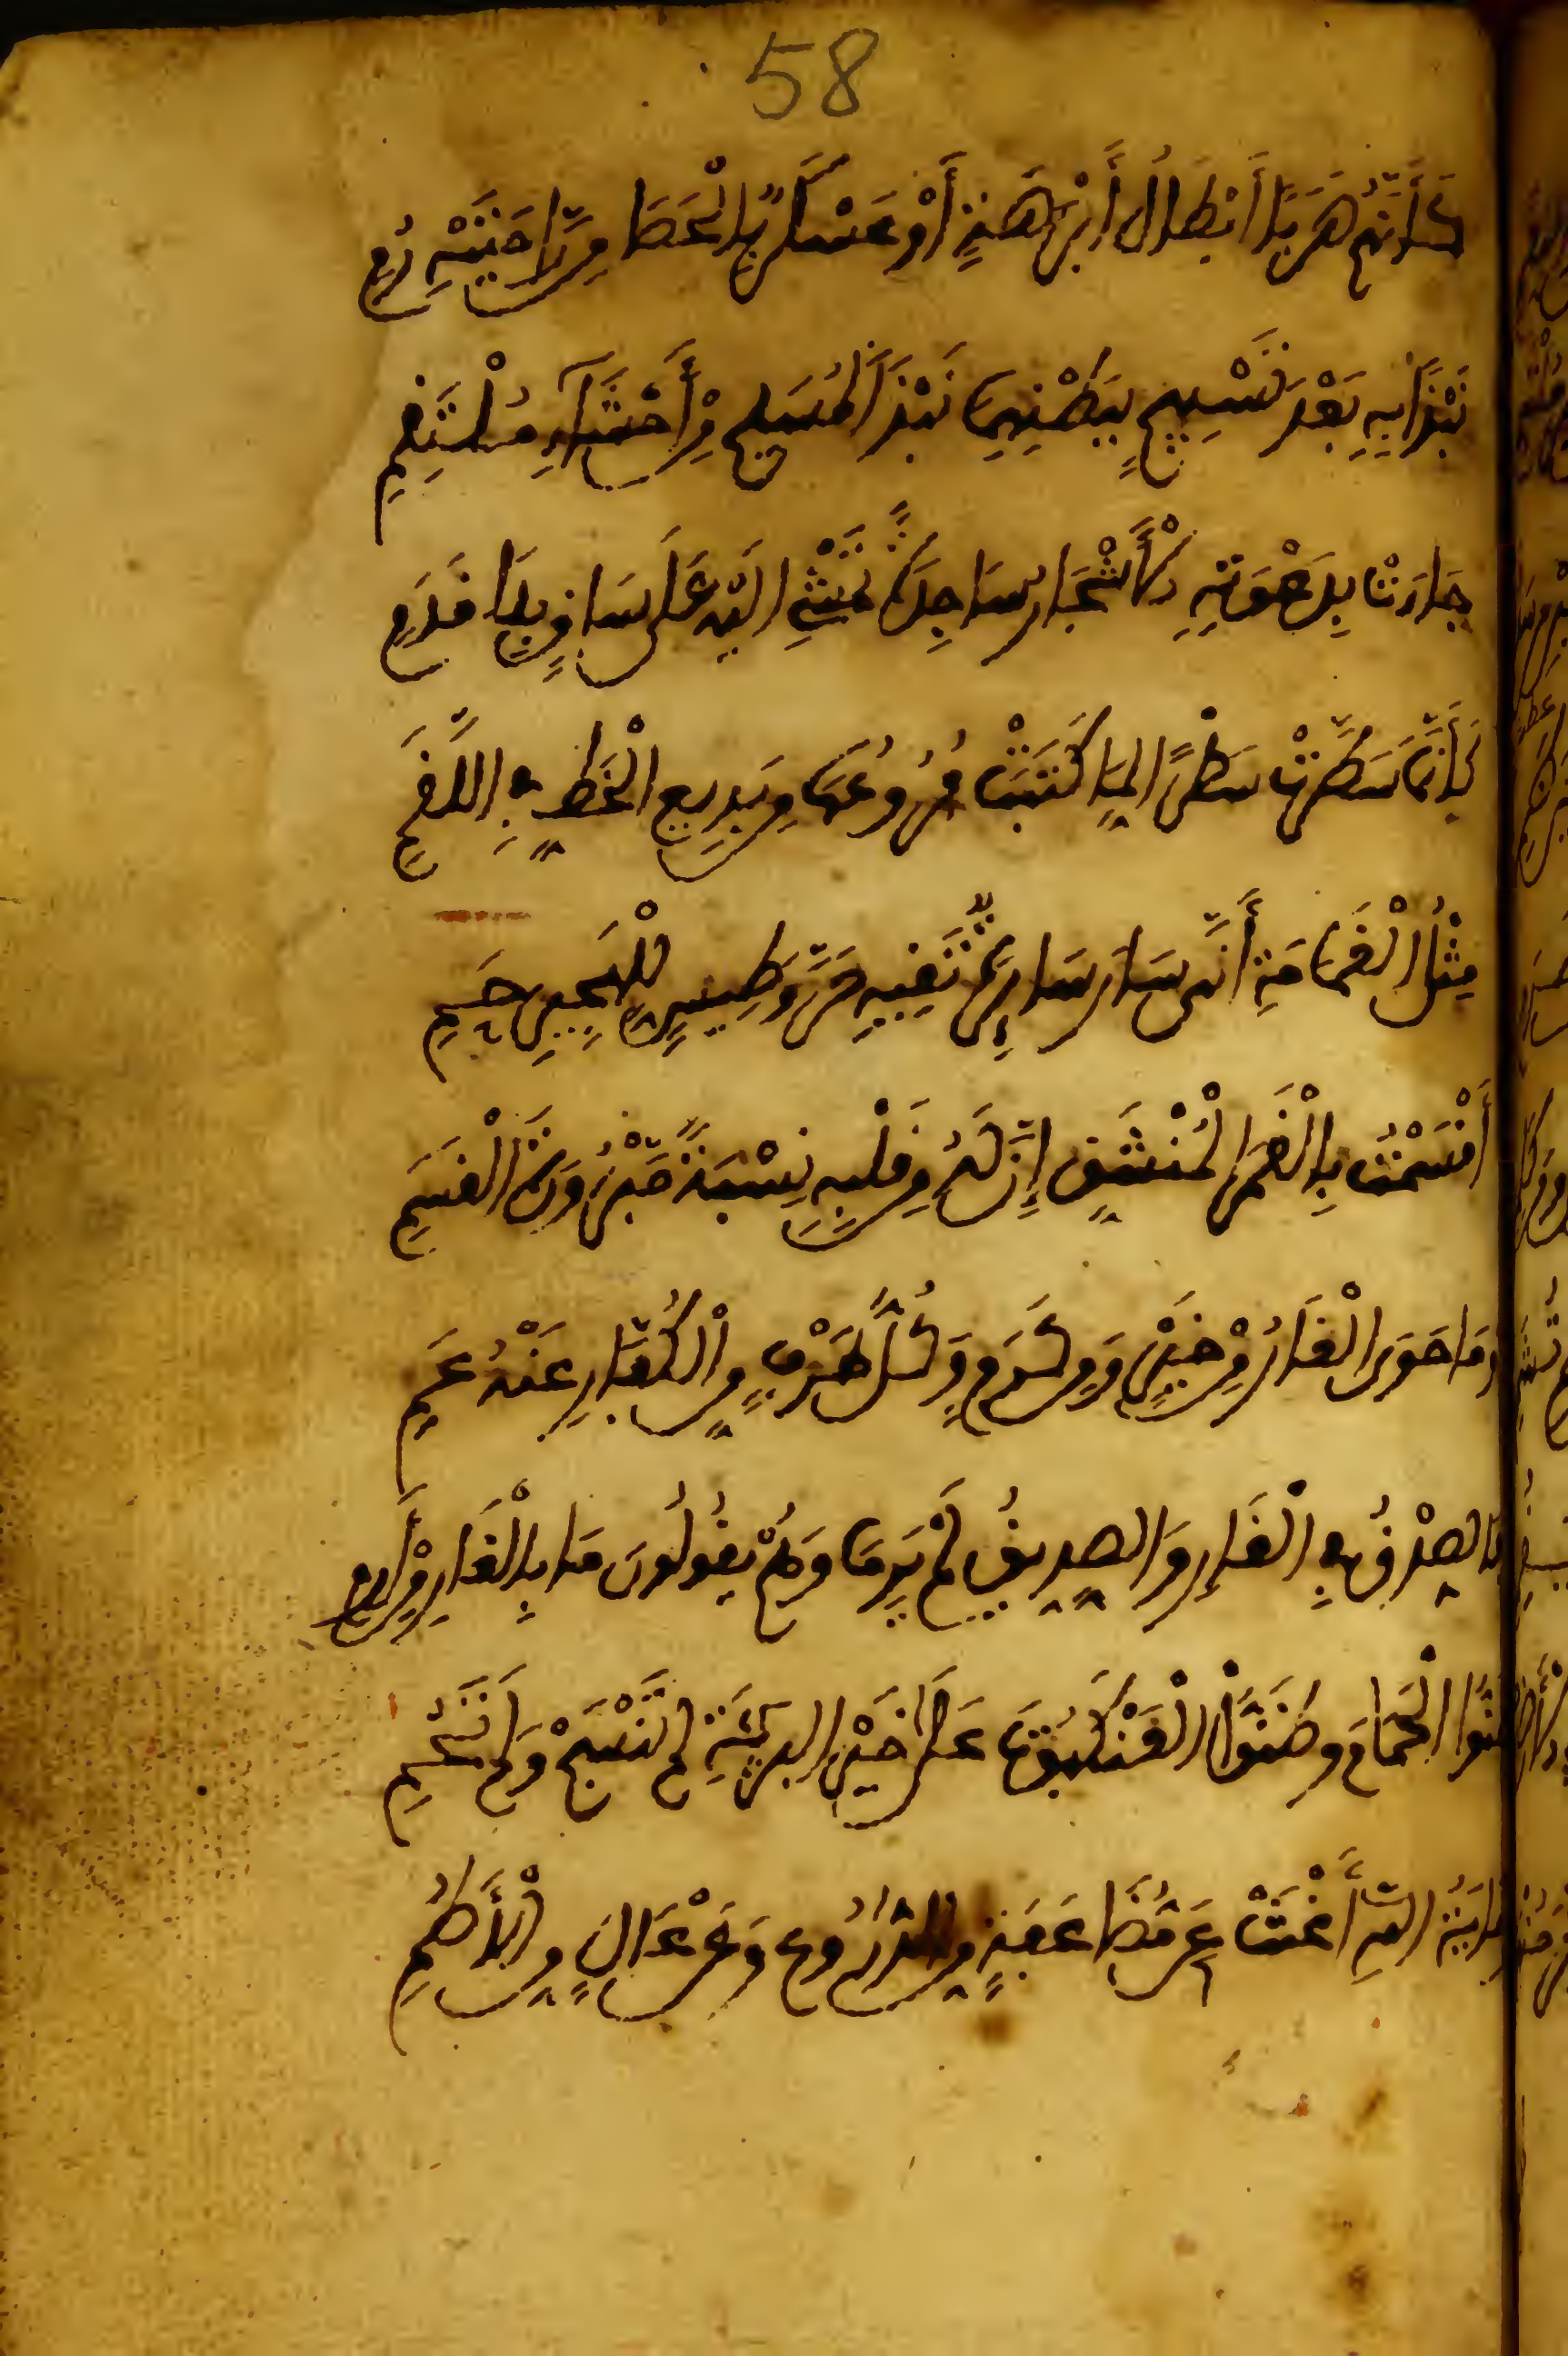 58
كَأَنَّهُمْ هَرَبًا أَبْطَالُ أَبْرَهَةٍ أَوْ عَسْكَرٌ بِالْحَصَا مِن رَّاحَتَيْهِ رُمِ
نَبْذًا بِهِ بَعْدَ تَسْبِيحٍ بِبَطْنِهِمَا نَبْذَ الْمُسَبِّحِ مِنْ أَحْشَآءِ مُلْتَقِمِ
جَاءَتْ لِدَعْوَتِهِ الْأَشْجَارُ سَاجِدَةً تَمْشِي إِلَيْهِ عَلَى سَاقٍ بِلَا قَدَمِ
كَأَنَّمَا سَطَّرَتْ سَطْرًا لِمَا كَتَبَتْ فُرُوعُهَا مِن بَدِيعِ الْخَطِّ فِي اللَّقَمِ
مِثْلُ الْغَمَامَةِ أَنَّى سَارَ سَائِرَةً تَقِيهِ حَرَّ وَطِيسٍ لِلْهَجِيرِ حَمِ
أَقْسَمْتُ بِالْقَمَرِ الْمُنْشَقِّ إِنَّ لَهُ مِن قَلْبِهِ نِسْبَةً مَبْرُورَةَ الْقَسَمِ
وَمَا حَوَى الْغَارُ مِنْ خَيْرٍ وَمِن كَرَمٍ وَكُلُّ طَرْفٍ مِنَ الْكُفَّارِ عَنْهُ عَمِ
فَالصِّدْقُ فِي الْغَارِ وَالصِّدِّيقُ لَمْ يَرِمَا وَهُمْ يَقُولُونَ مَا بِالْغَارِ مِنْ أَرِمِ
ظَنُّوا الْحَمَامَ وَظَنُّوا الْعَنْكَبُوتَ عَلَى خَيْرِ الْبَرِيَّةِ لَمْ تَنْسُجْ وَلَمْ تَحُمِ
وِقَايَةُ اللَّهِ أَغْنَتْ عَن مُضَاعَفَةٍ مِنَ الدُّرُوعِ وَعَنْ عَالٍ مِنَ الْأُطُمِ